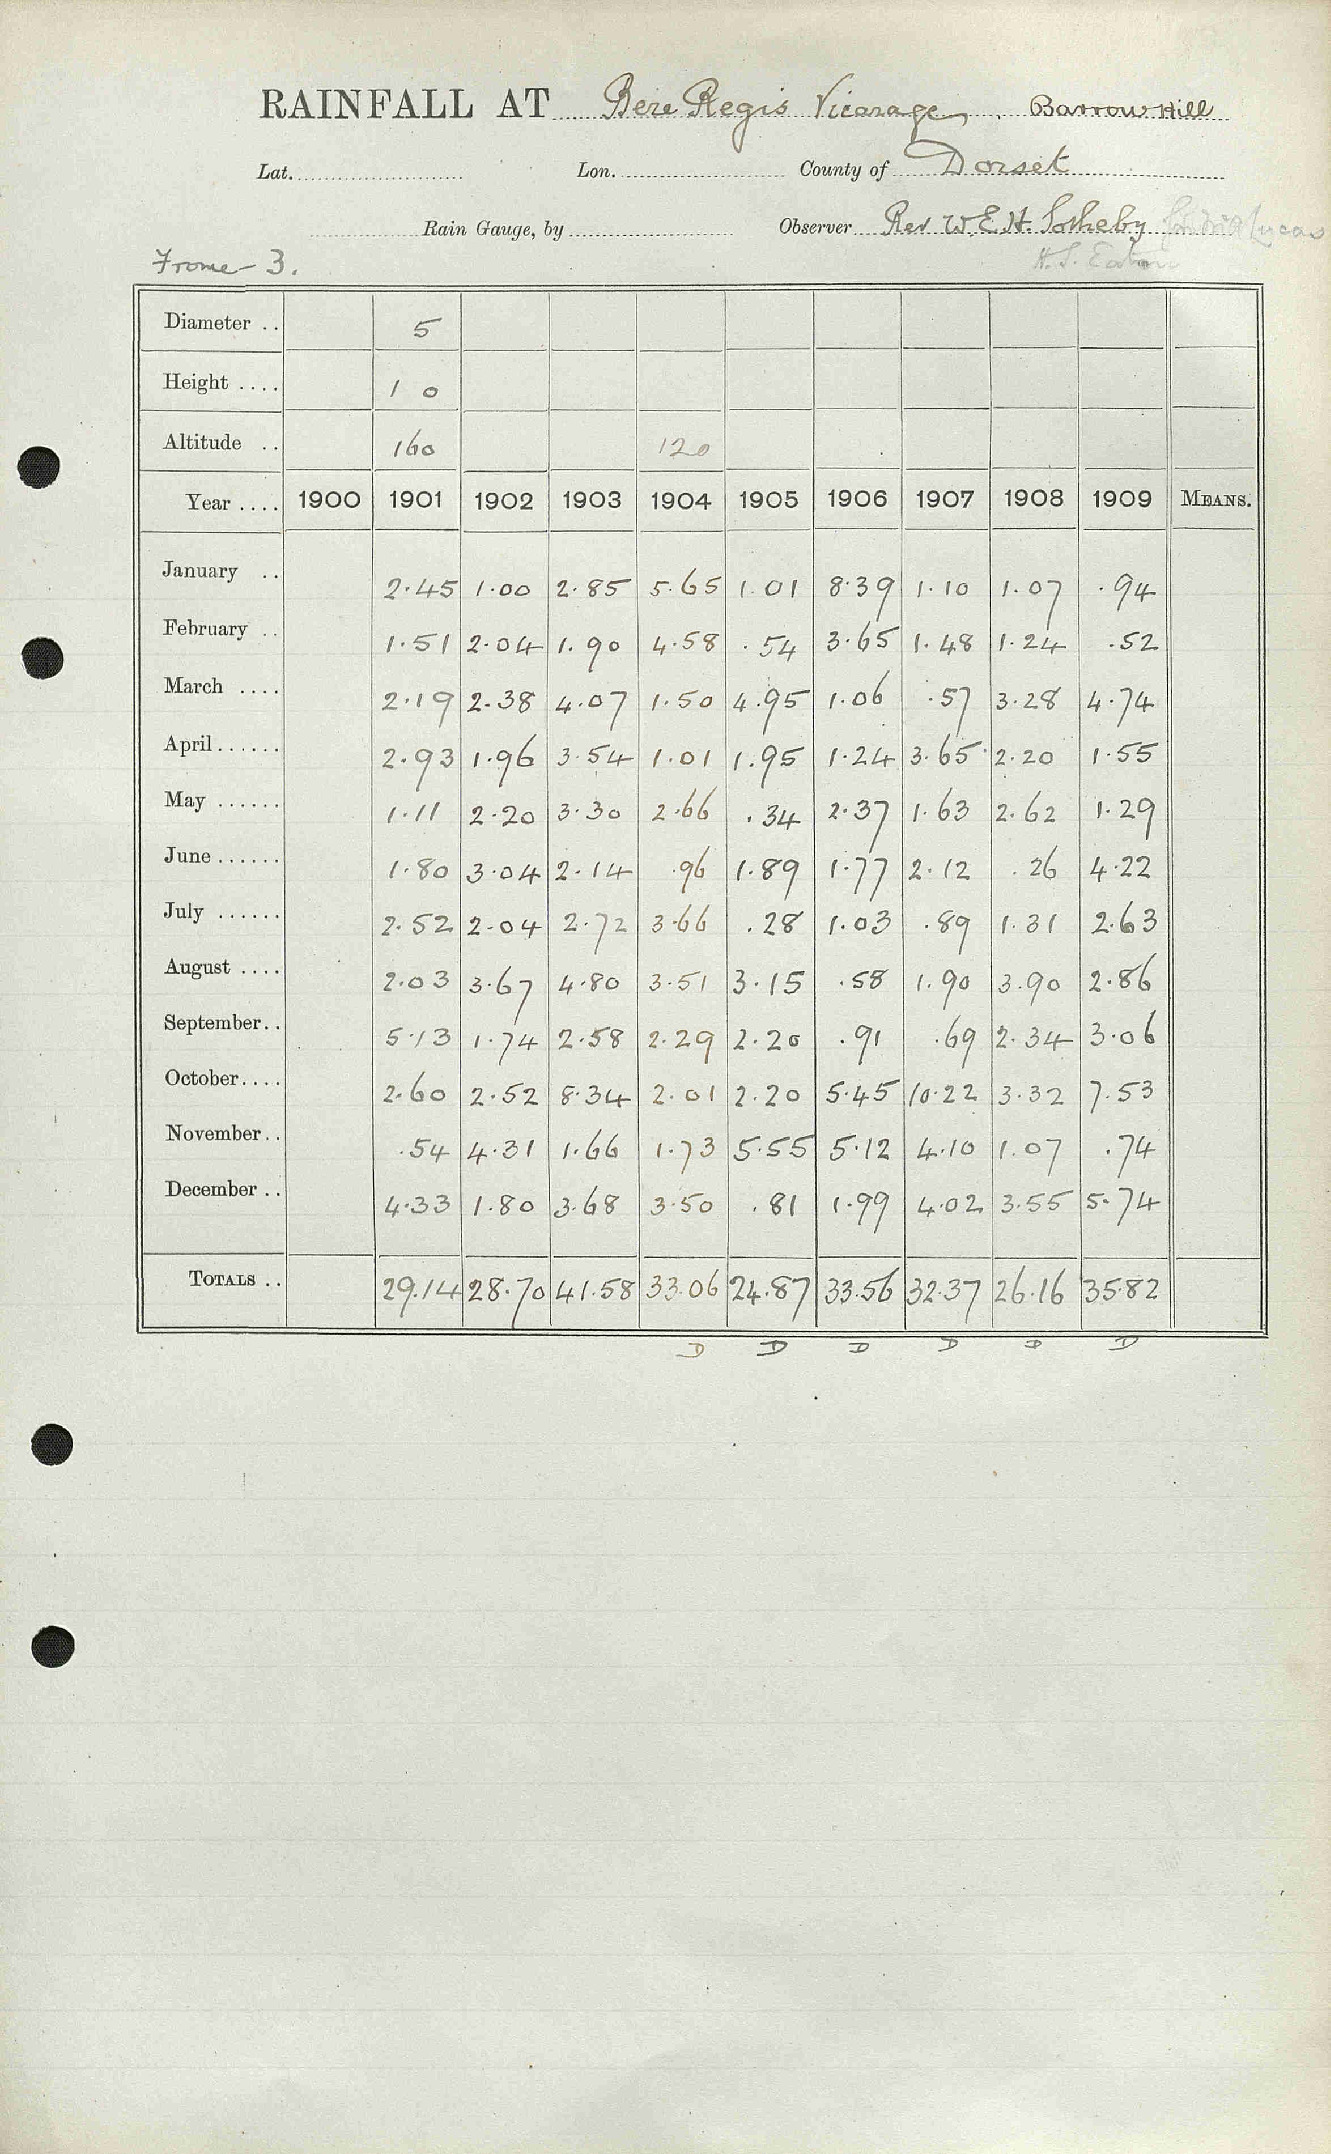 RAINFALL AT Bere Regis Vicarage, Barrow Hill
Lat. Lon. County of Dorset
Rain Gauge, by Observer Rev W.E.H. Sotheby Lucas
Frome 3. H.S. Eaton
Diameter .. 5
Height .... 1 0
Altitude .. 160 120
Year .... 1900 1901 1902 1903 1904 1905 1906 1907 1908 1909 MEANS.
January .. 2.45 1.00 2.85 5.65 1.01 8.39 1.10 1.07 .94
February .. 1.51 2.04 1.90 4.58 .54 3.65 1.48 1.24 .52
March .... 2.19 2.38 4.07 1.50 4.95 1.06 .57 3.28 4.74
April...... 2.93 1.96 3.54 1.01 1.95 1.24 3.65 2.20 1.55
May ...... 1.11 2.20 3.30 2.66 .34 2.37 1.63 2.62 1.29
June...... 1.80 3.04 2.14 .96 1.89 1.77 2.12 .26 4.22
July ...... 2.52 2.04 2.72 3.66 .28 1.03 .89 1.31 2.63
August .... 2.03 3.67 4.80 3.51 3.15 .58 1.90 3.90 2.86
September.. 5.13 1.74 2.58 2.29 2.20 .91 .69 2.34 3.06
October.... 2.60 2.52 8.34 2.01 2.20 5.45 10.22 3.32 7.53
November.. .54 4.31 1.66 1.73 5.55 5.12 4.10 1.07 .74
December .. 4.33 1.80 3.68 3.50 .81 1.99 4.02 3.55 5.74
TOTALS .. 29.14 28.70 41.58 33.06 24.87 33.56 32.37 26.16 35.82
D D D D D D